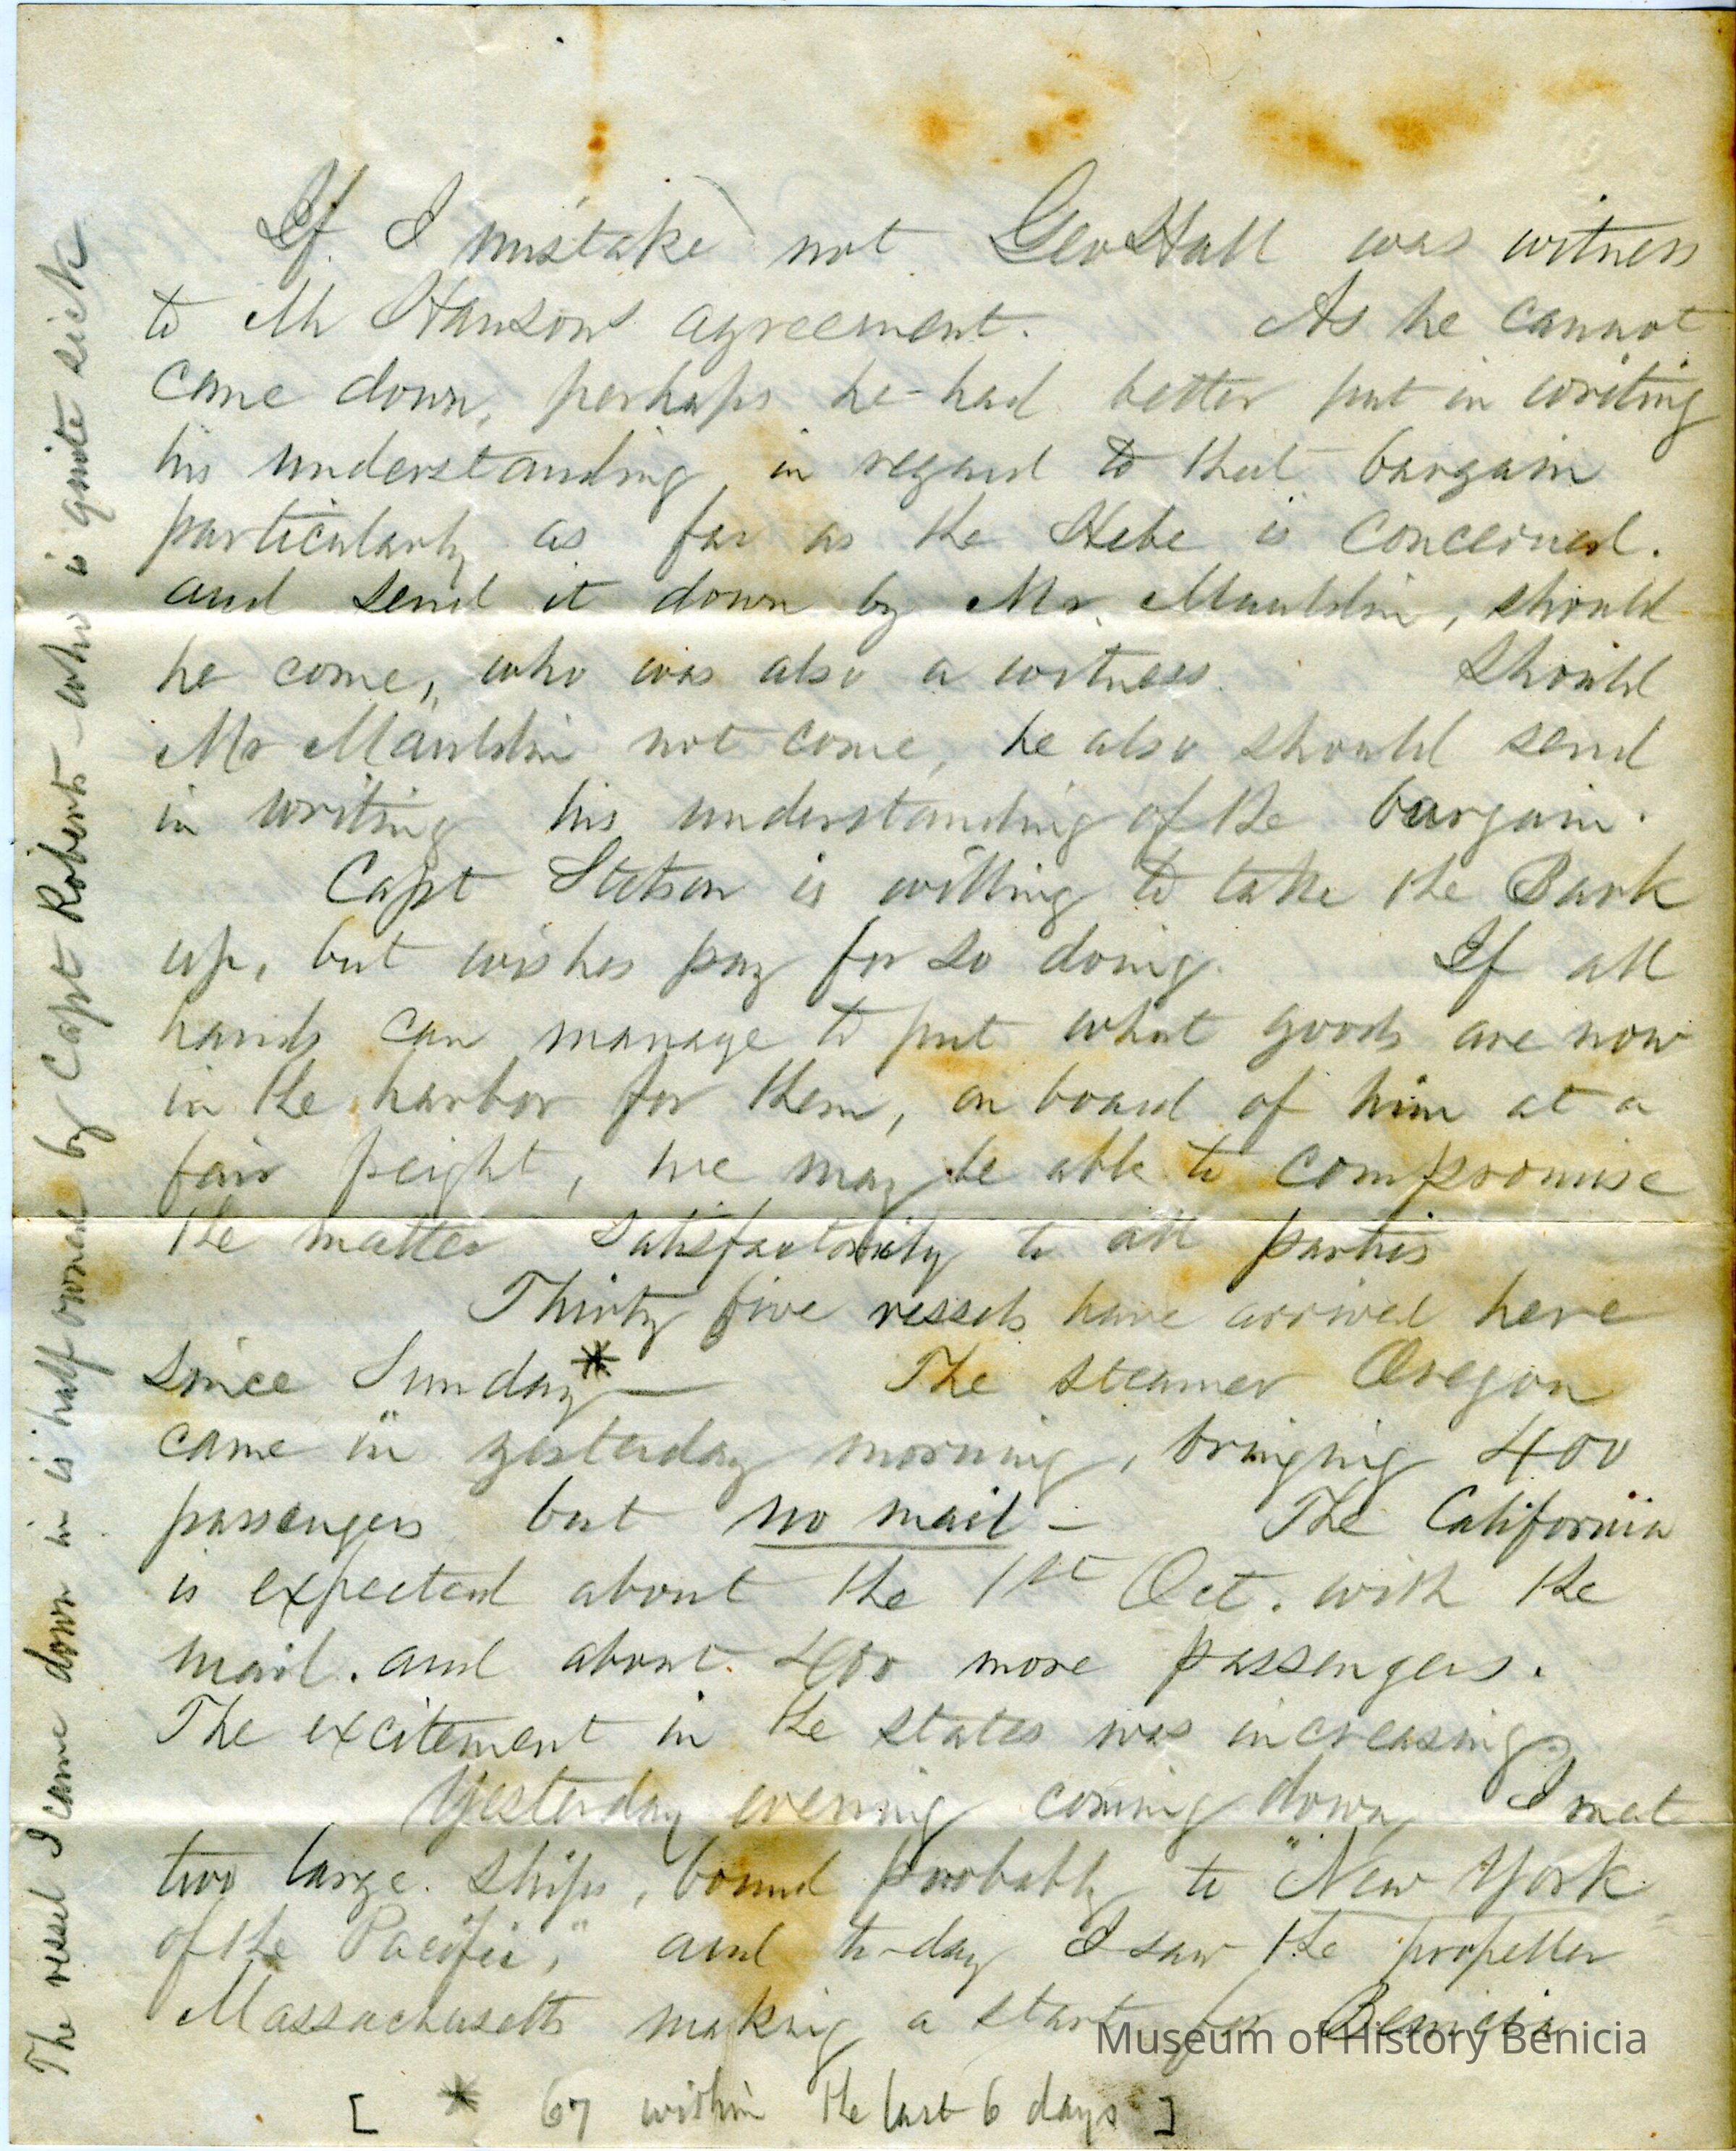 If I mistake not Geo Hall was witness
to Mr Hansons agreement. As he cannot
come down, perhaps he had better put in writing
his understanding in regard to that bargain
particularly as far as the Hebe is concerned.
and send it down by Mr. Mauldin, should
he come, who was also a witness. Should
Mr Mauldin not come, he also should send
in writing his understanding of the bargain.
Capt Stetson is willing to take the Bark
up, but wishes pay for so doing. If all
hands can manage to put what goods are now
in the harbor for them, on board of him at a
fair freight, we may be able to compromise
the matter satisfactorily to all parties
Thirty five vessels have arrived here
since Sunday* — The steamer Oregon
came in yesterday morning, bringing 400
passengers but no mail — The California
is expected about the 1st Oct. with the
mail. and about 400 more passengers.
The excitement in the states was increasing.
Yesterday evening coming down, I met
two large ships, bound probably to "New York
of the Pacific," and to-day I saw the propeller
Massachusetts making a start for Benicia
[ * 67 within the last 6 days ]
The vessel I came down in is half owned by Capt Roberts - who is quite sick
Museum of History Benicia